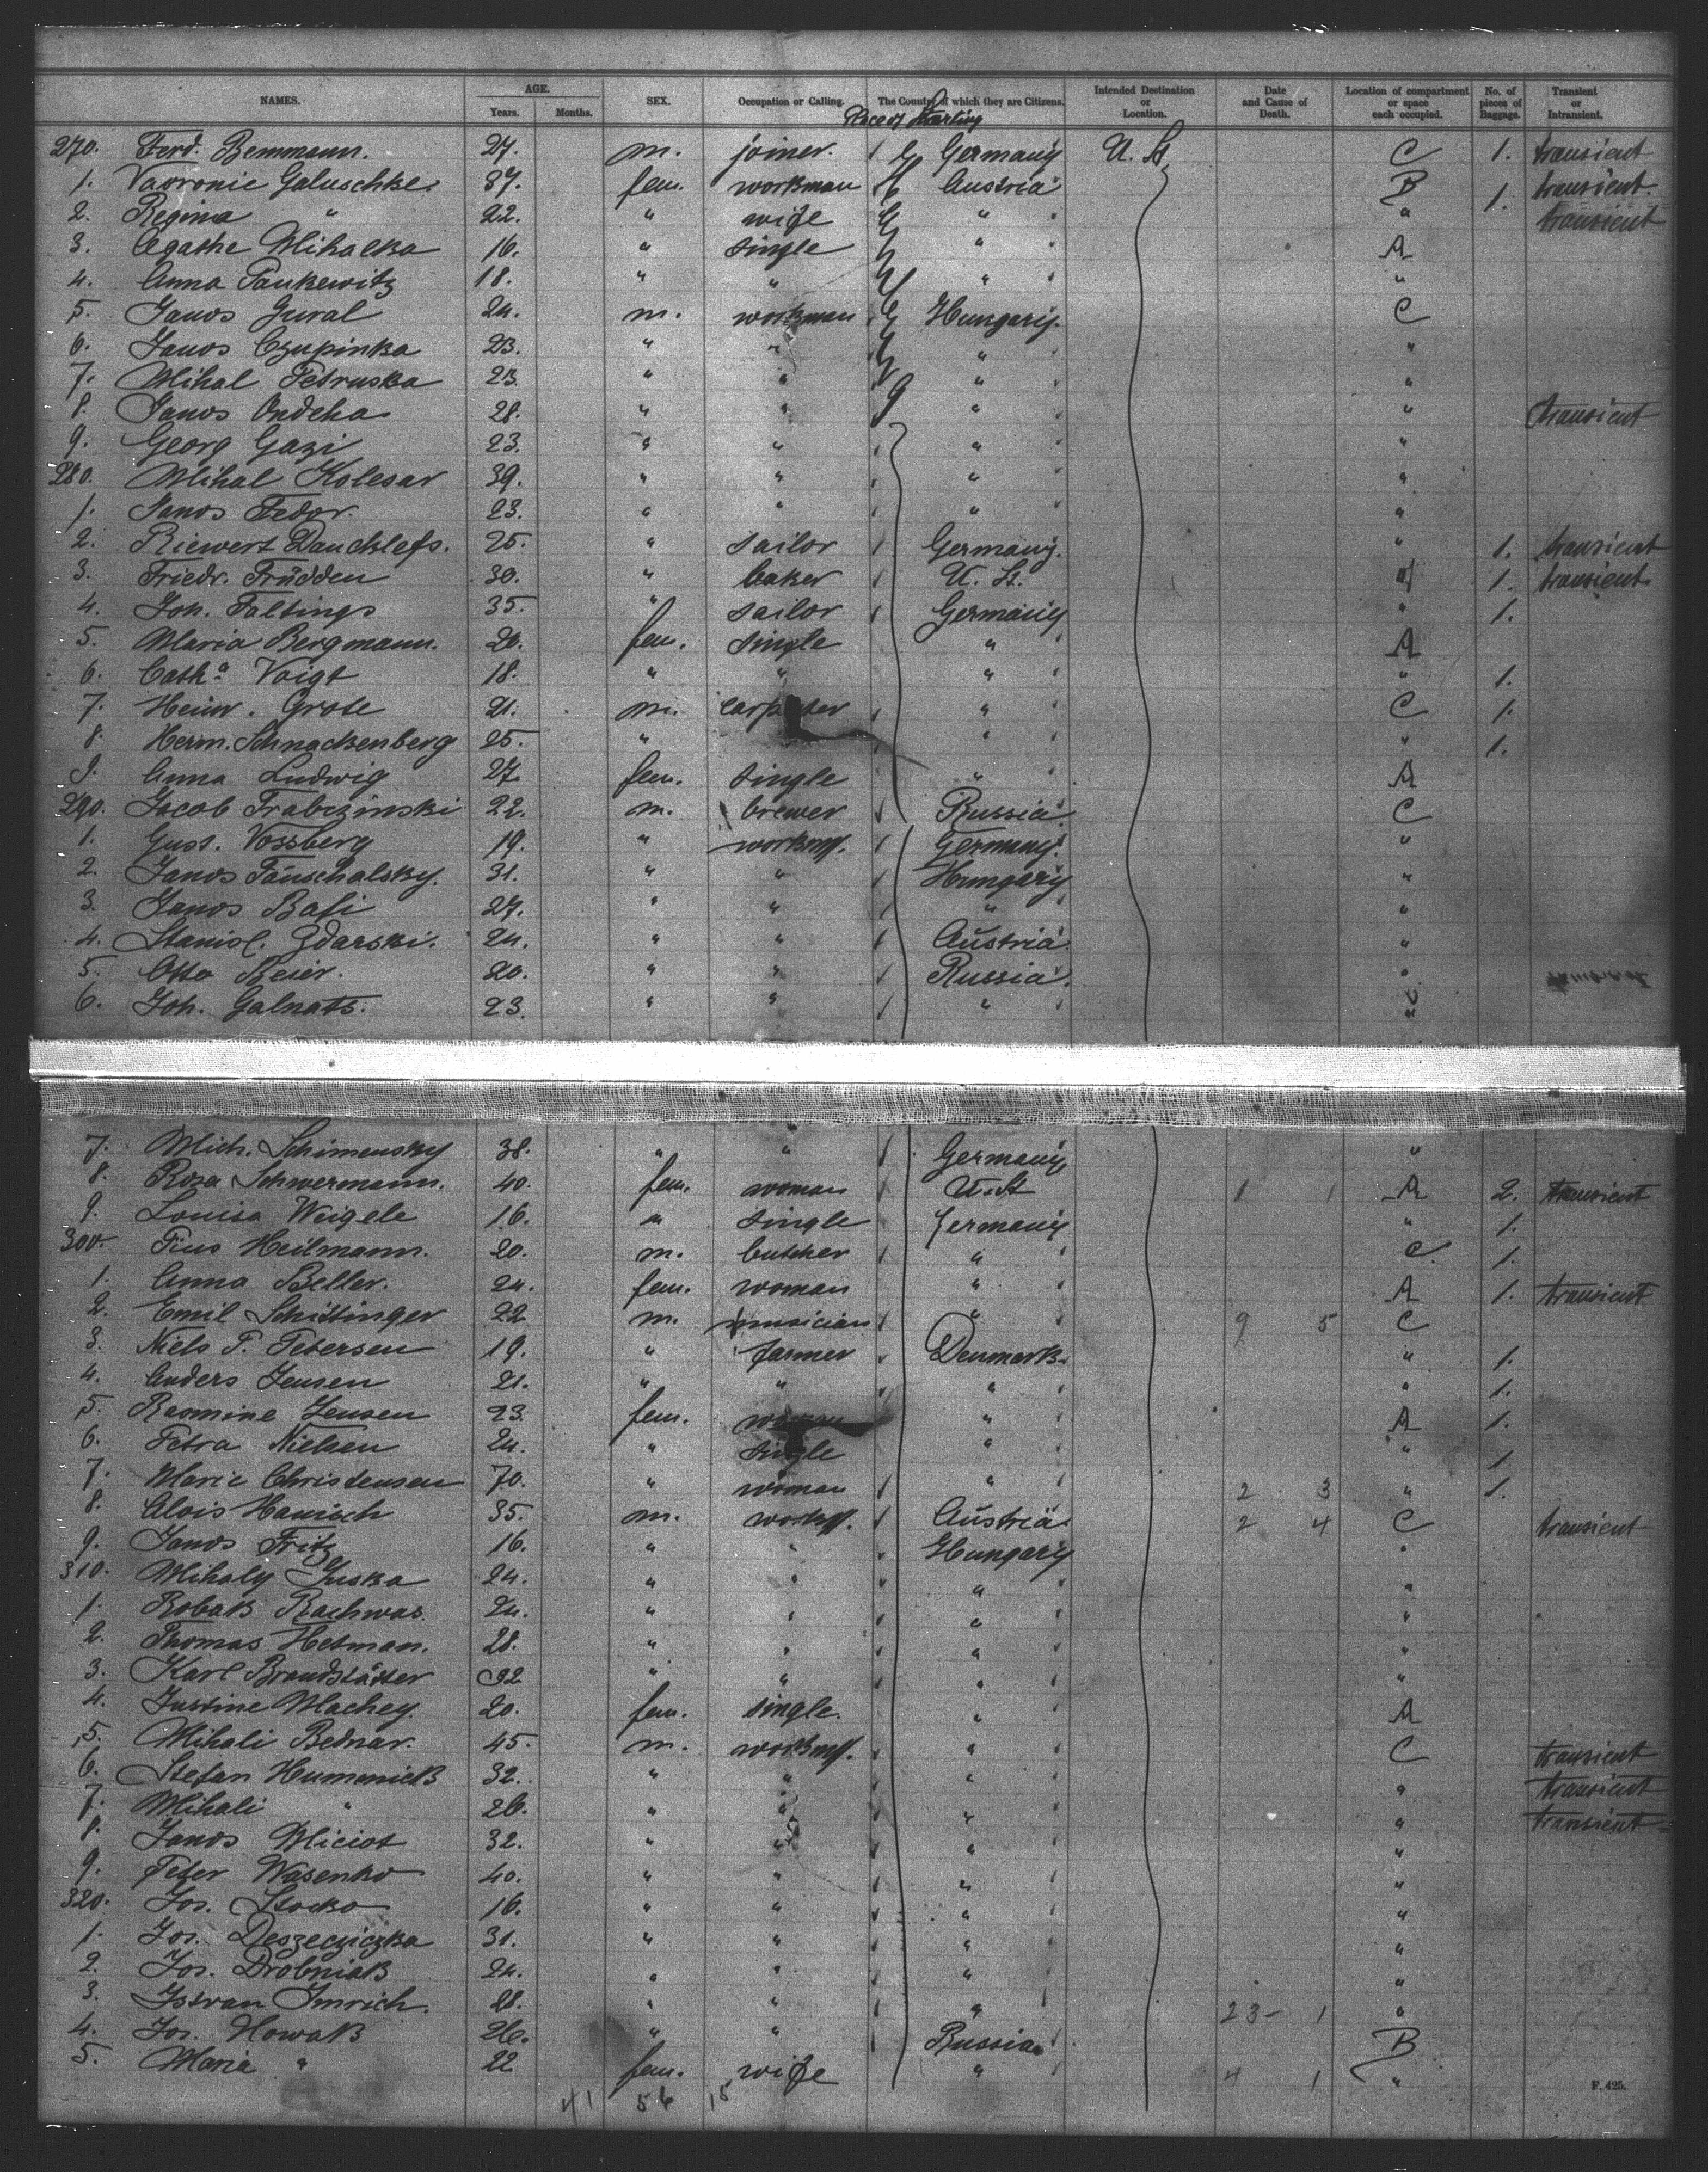 NAMES. AGE. Years. Months. SEX. Occupation or Calling. The Country of which they are Citizens. Intended Destination or Location. Date and Cause of Death. Location of compartment or space each occupied. No. of pieces of Baggage. Transient or Intransient.
Place of Starting
270. Ferd. Bemmann. 27. m. joiner. Germany U. St. C 1. transient
1. Vavronie Galuschke. 37. fem. workman Austria B 1. transient
2. Regina " 22. " wife " " transient
3. Agathe Mihalka 16. " single " A
4. Anna Pankewitz 18. " " " "
5. Janos Gural 24. m. workman Hungary. C
6. Janos Czupinka 23. " " " "
7. Mihal Petruska 23. " " " "
8. Janos Ondeha 28. " " " " transient
9. Georg Gazi 23. " " " "
280. Mihal Kolesar 39. " " " "
1. Janos Fedor. 23. " " " "
2. Riewert Dancklefs. 25. " sailor Germany. " 1. transient
3. Friedr. Prüdden 30. " baker U. St. " 1. transient
4. Joh. Faltings 35. " sailor Germany " 1.
5. Maria Bergmann. 20. fem. single " A
6. Cath.a Voigt 18. " " " " 1.
7. Heinr. Grote 21. m. carpenter " C 1.
8. Herm. Schnackenberg 25. " " " 1.
9. Anna Ludwig 27. fem. single " A
290. Jacob Trabczinski 22. m. brewer Russia C
1. Gust. Vossberg 19. " workm. Germany. "
2. Janos Pauschalsky. 31. " " Hungary "
3. Janos Bafi 27. " " " "
4. Stanisl. Zdarski. 24. " " Austria "
5. Otto Beier. 20. " " Russia. "
6. Joh. Galnats. 23. " " " "
7. Mich. Schimensky 38. " " Germany "
8. Rosa Schwermann. 40. fem. woman U. St 1 1 A 2. transient
9. Louisa Weigele 16. " single Germany " 1.
300. Pius Heilmann. 20. m. butcher " C 1.
1. Anna Beller. 24. fem. woman " A 1. transient
2. Emil Schittinger 22 m. musician " 9 5 C
3. Niels P. Petersen 19. " farmer Denmark. " 1.
4. Anders Jensen 21. " " " " 1.
5. Rasmine Jensen 23. fem. woman " A 1.
6. Petra Nielsen 24. " single " " 1
7. Marie Christensen 70. " woman " 2 3 " 1.
8. Alois Hanisch 35. m. workm. Austria. 2 4 C transient
9. Janos Fritz 16. " " Hungary "
310. Mihaly Juska 24. " " " "
1. Robak Rachwas. 24. " " " "
2. Thomas Hetman. 28. " " " "
3. Karl Brandstätter 32 " " " "
4. Justine Machey. 20. fem. single. " A
5. Mihali Bednar. 45. m. workm. " C transient
6. Stefan Humenick 32. " " " " transient
7. Mihali " 26. " " " " transient
8. Janos Miciot 32. " " " "
9. Peter Wasenko 40. " " " "
320. Jos. Stocko 16. " " " "
1. Jos. Deszecziczka 31. " " " "
2. Jos. Drobniak 24. " " " "
3. Istvan Imrich. 28. " " " 23- 1 "
4. Jos. Nowak 26. " " Russia B
5. Maria " 22 fem. wife " 4 1 "
41 56 15
F. 425.